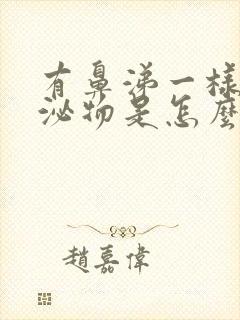 有鼻涕一樣
泌物是怎麼
趙嘉偉